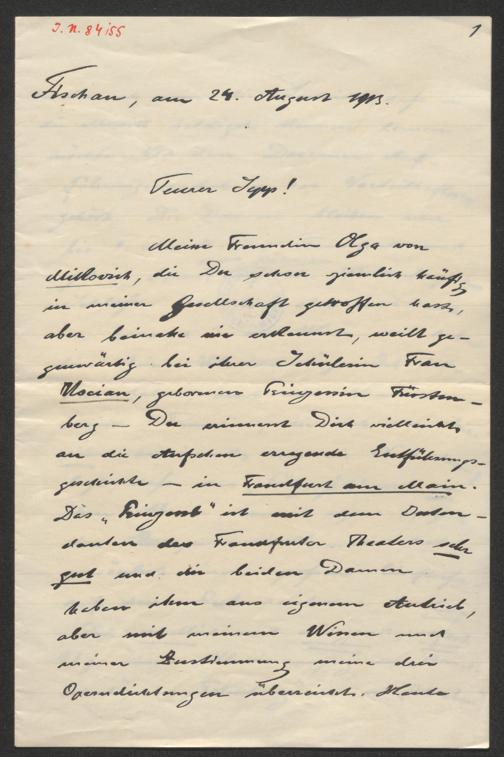 I. N. 84155
1
Fischau, am 24. August 1913.
Teurer Sepp!
Meine Freundin Olga von
Mitlovich, die Du schon ziemlich häufig
in meiner Gesellschaft getroffen hast,
aber beinahe nie erkennst, weilt ge-
genwärtig bei ihrer Schülerin Frau
geborenen Prinzessin Fürsten-
berg – Du erinnerst Dich vielleicht
an die Aufsehen erregende Entführungs-
geschichte – in Frankfurt am Main.
Das „ ist mit dem Inten-
danten des Frankfurter Theaters sehr
gut und die beiden Damen
haben ihm aus eigenem Antrieb,
aber mit meinem Wissen und
meiner Zustimmung meine drei
Operndichtungen überreicht. Heute